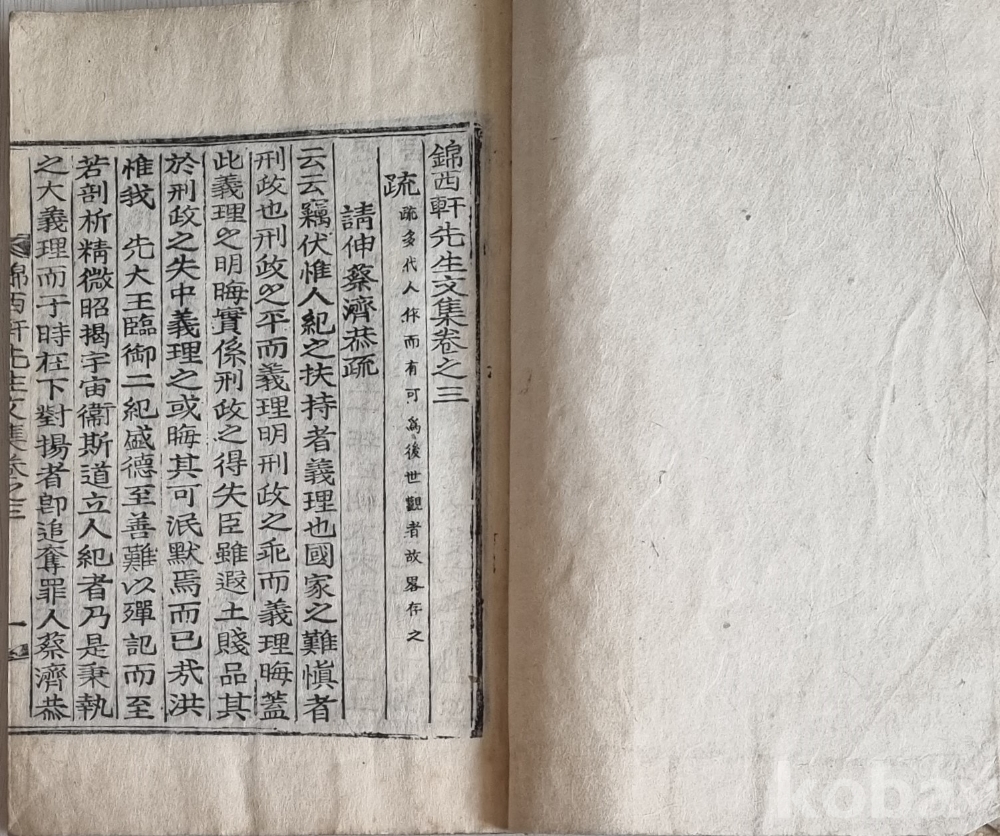 錦西軒先生文集卷之三
疏 疏多代人作而有可爲後世觀者故畧存之
請伸蔡濟恭疏
云云竊伏惟人紀之扶持者義理也國家之難愼者
刑政也刑政之平而義理明刑政之乖而義理晦蓋
此義理之明晦實係刑政之得失臣雖遐土賤品其
於刑政之失中義理之或晦其可泯默焉而已㢤洪
惟我 先大王臨御二紀盛德至善難以殫記而至
若剖析精微昭揭宇宙衞斯道立人紀者乃是秉執
之大義理而于時在下對揚者卽追奪罪人蔡濟恭
錦西軒先生文集卷之三 一
koba